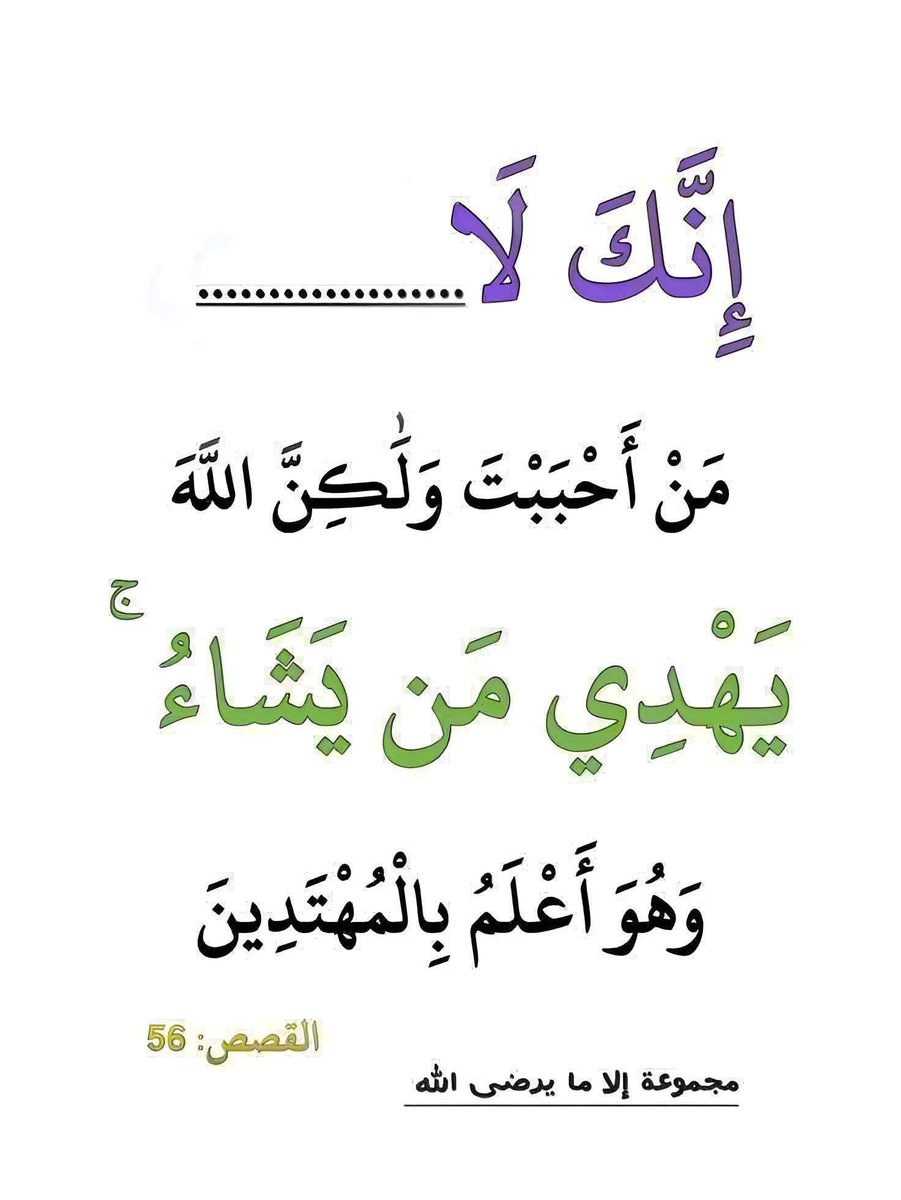 إِنَّكَ لَا.................
مَنْ أَحْبَبْتَ وَلَٰكِنَّ اللَّهَ
يَهْدِي مَن يَشَاءُ ۚ
وَهُوَ أَعْلَمُ بِالْمُهْتَدِينَ
القصص: 56
مجموعة إلا ما يرضى الله